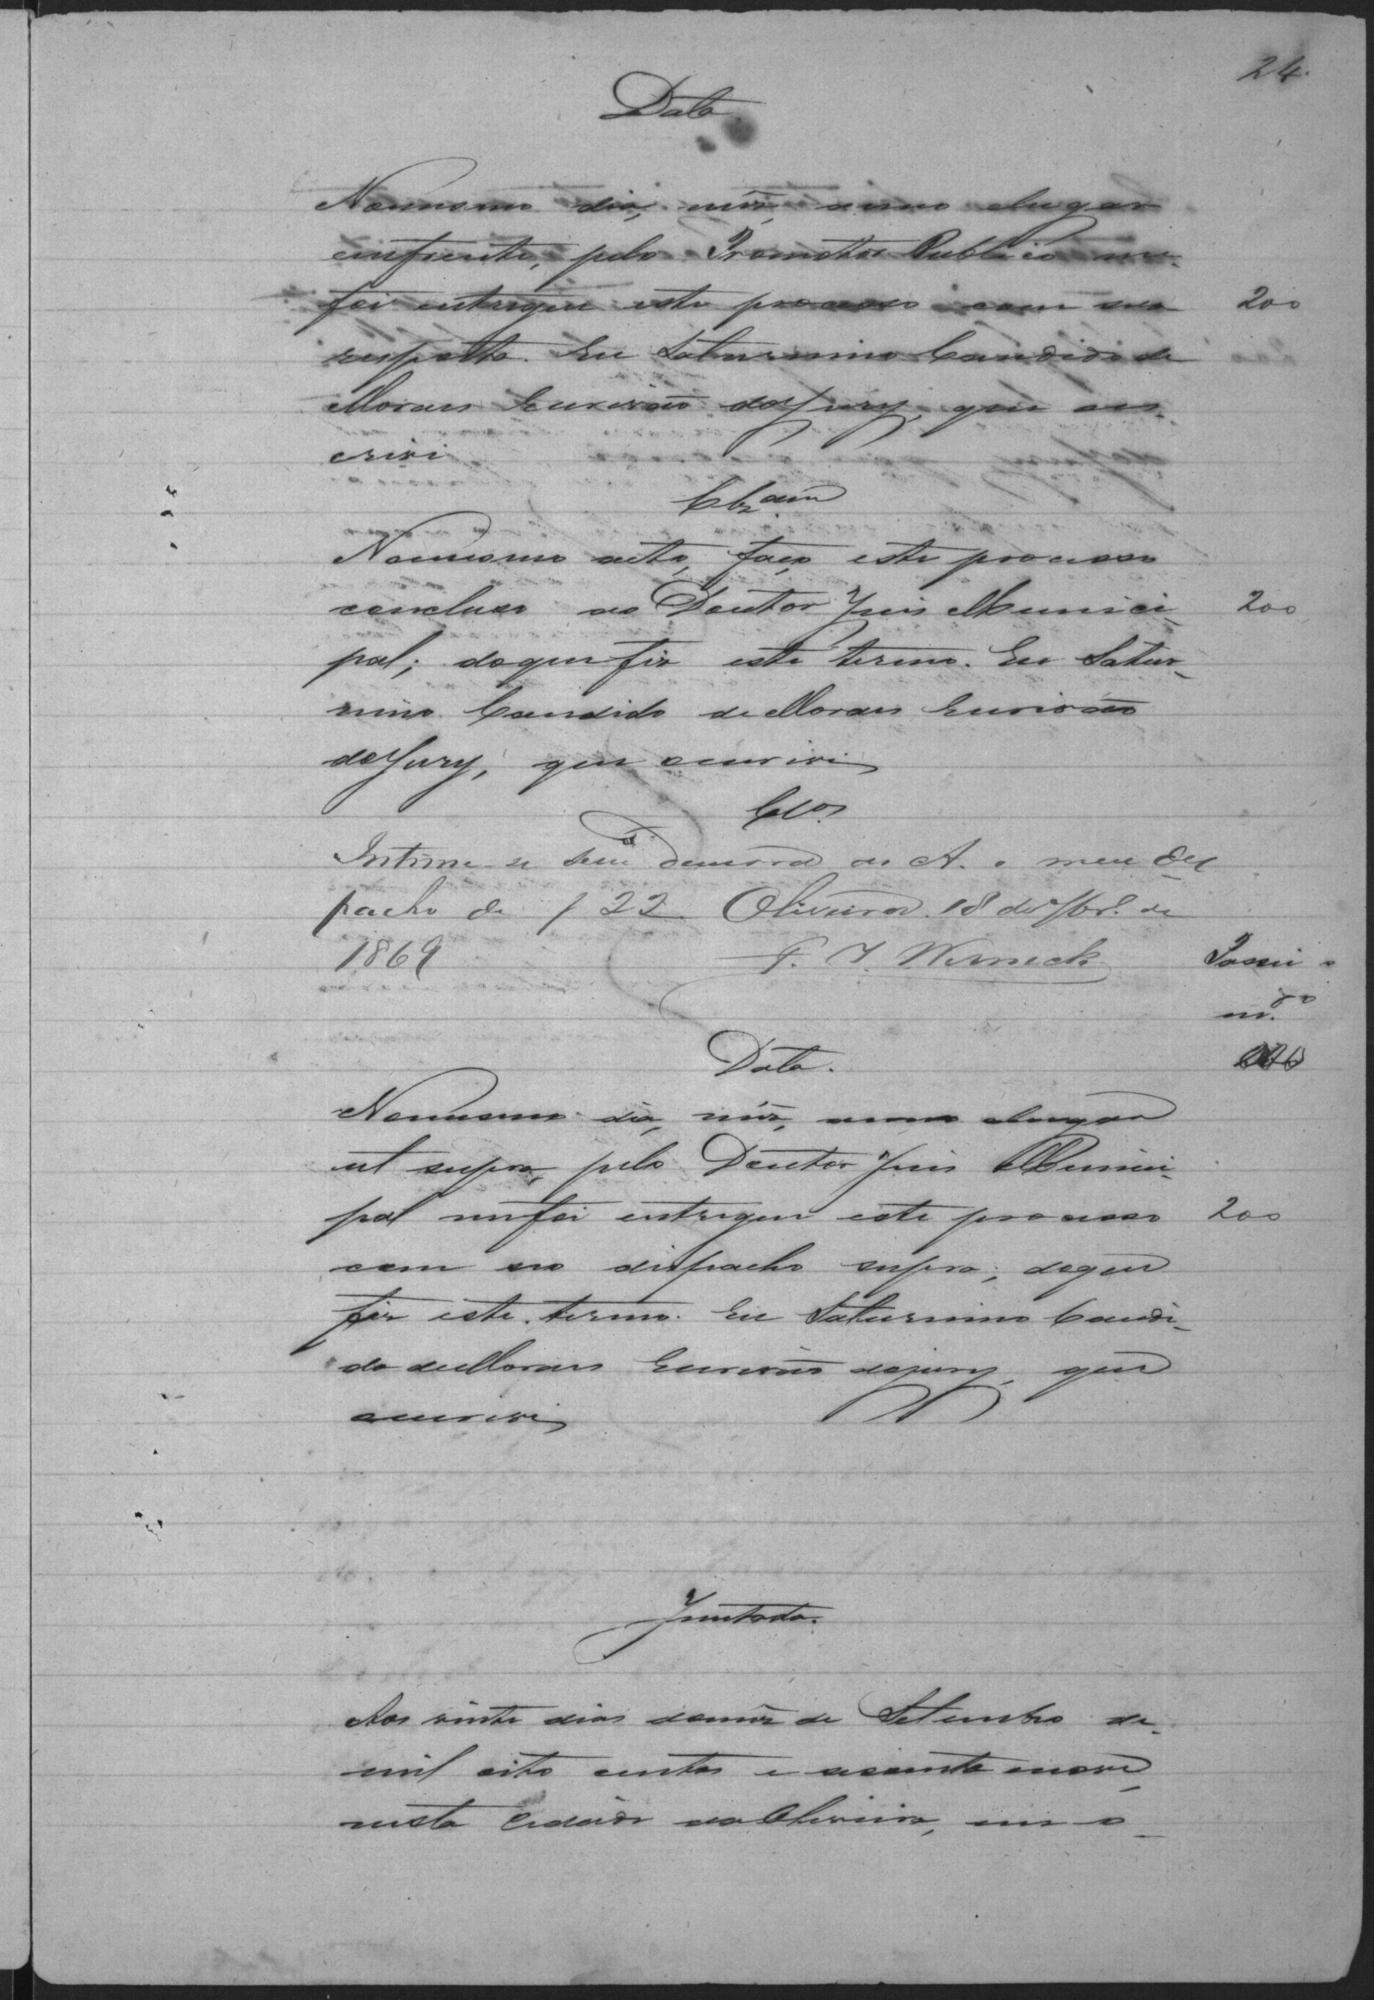 24.
Data.
Nomesmo dia, mêz, anno elugar
emfrente, pelo Promottor Publico me
foi entregue este processo com sua 200
resposta. Eu Saturnino Candido de
Moraes Escrivão do Jury, que es-
crivi
Clzam
Nomesmo acto, faço este processo
concluso ao Doutor Juis Munici- 200
pal; doque fiz este termo. Eu Satur-
nino Candido de Moraes Escrivão
do Jury, que escrivi
Clos
Intime-se sem demora ao A. o meu des
pacho de f 22 Oliveira 18 de 7br. de
1869 F. J. Werneck
Data.
Nomesmo dia, mêz, anno elugar
ut supra, pelo Doutor Juis Munici-
pal mefoi entregue este processo 200
com seo dispacho supra; doque
fiz este termo. Eu Saturnino Candi-
do de Moraes Escrivão do jury, que
escrivi
Juntada.
Aos vinte dias domêz de Setembro de
mil oito centos e secenta enove,
nesta Cidade da Oliveira, em o